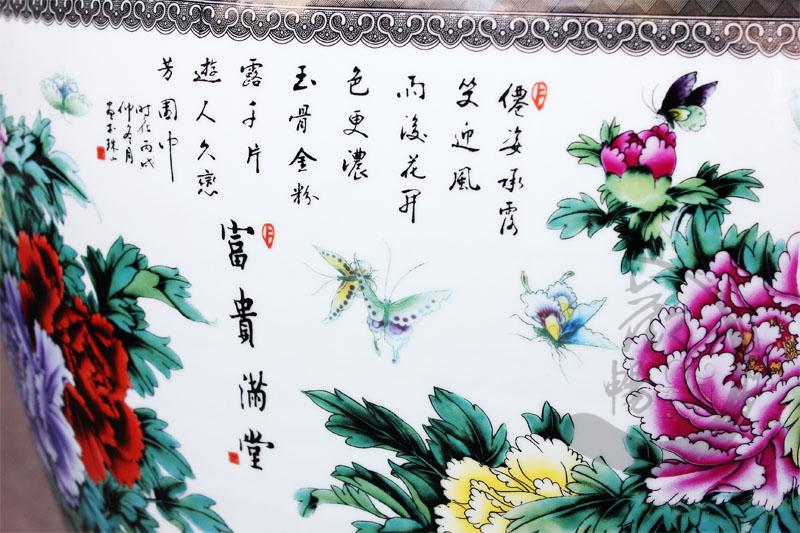 僊姿承露
笑迎風
雨後花開
色更濃
玉骨金粉
露千片
遊人久戀
芳園中
時在丙戌
仲冬月
富貴滿堂